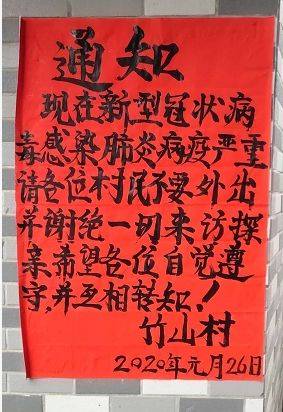 通知
现在新型冠状病
毒感染肺炎病疫严重
请各位村民不要外出
并谢绝一切来访探
亲希望各位自觉遵
守,并互相转知!
竹山村
2020年元月26日